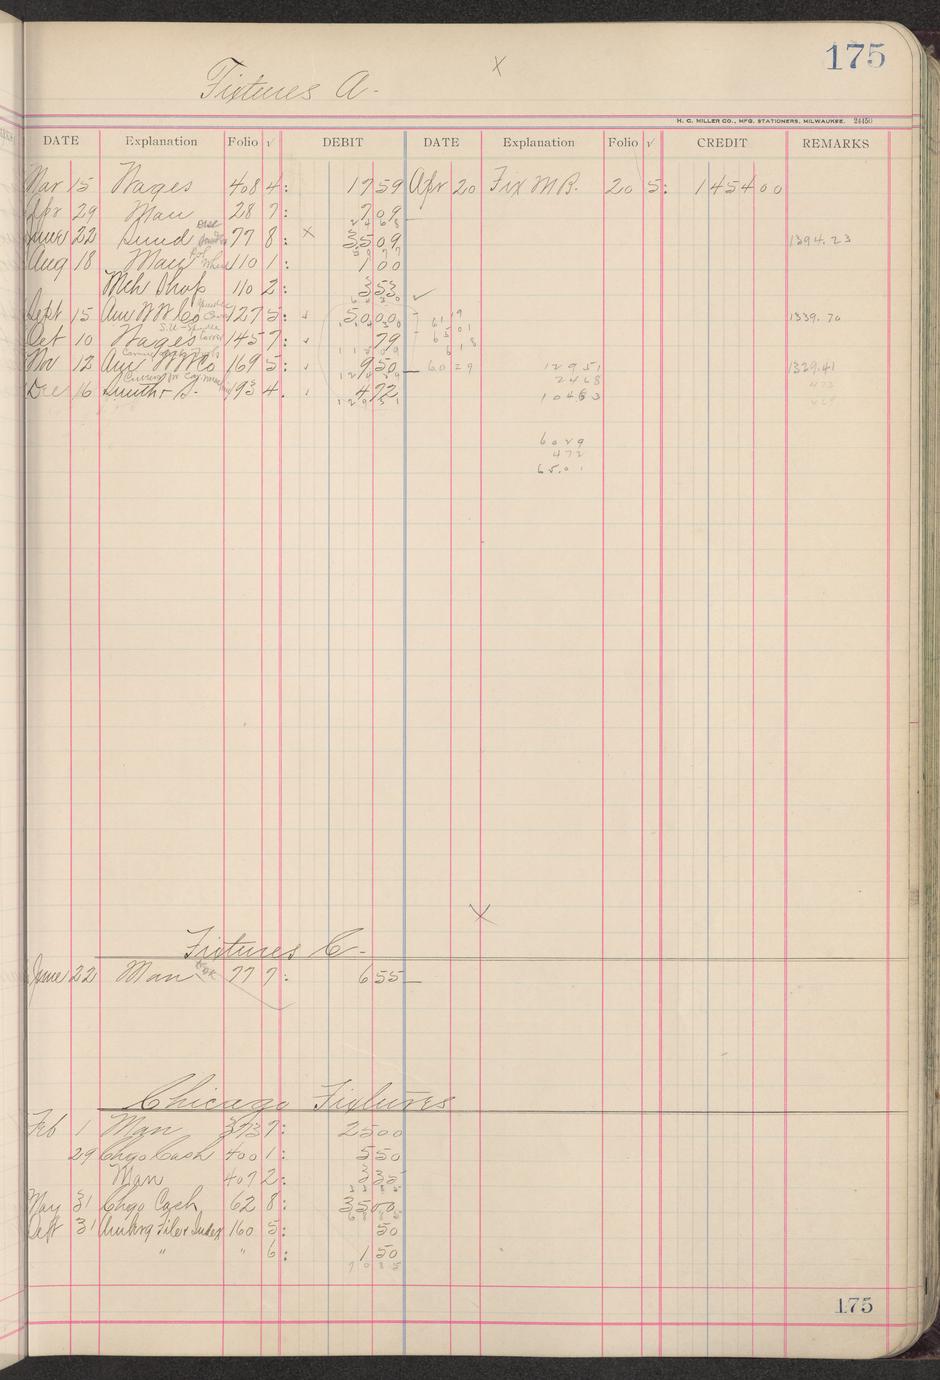 175
X
Fixtures A-
H. C. MILLER CO., MFG. STATIONERS, MILWAUKEE. 24450
DATE Explanation Folio √ DEBIT DATE Explanation Folio √ CREDIT REMARKS
Mar 15 Wages 408 4: 17 59 Apr 20 Fix M B. 20 5: 1454 00
Apr 29 Man 28 7: 7 09
24 68
June 22 Sund 77 8: X 35 09 1394.23
59 77
Aug 18 May 110 1: 1 00
Mch Shop 110 2: 3 53
✓
Sept 15 Am WW Co 127 5: 50 00 61 19 1339.70
65 01
Oct 10 Wages 145 7: 79 6 18
Nov 12 Am WW Co 169 5: 9 50 60 29 129 51 1329.41
24 68
Dec 16 Smith + S. 193 4. 4 72 104 83
129 51
60 29
4 72
65.01
X
Fixtures C-
June 22 Man 77 7: 6 55
Chicago Fixtures
Feb 1 Man 373 7: 25 00
29 Chgo Cash 400 1: 5 50
Man 407 2: 3 35
May 31 Chgo Cash 62 8: 35 00
Sept 31 Index 160 5: 50
" " 6: 1 50
70 85
175